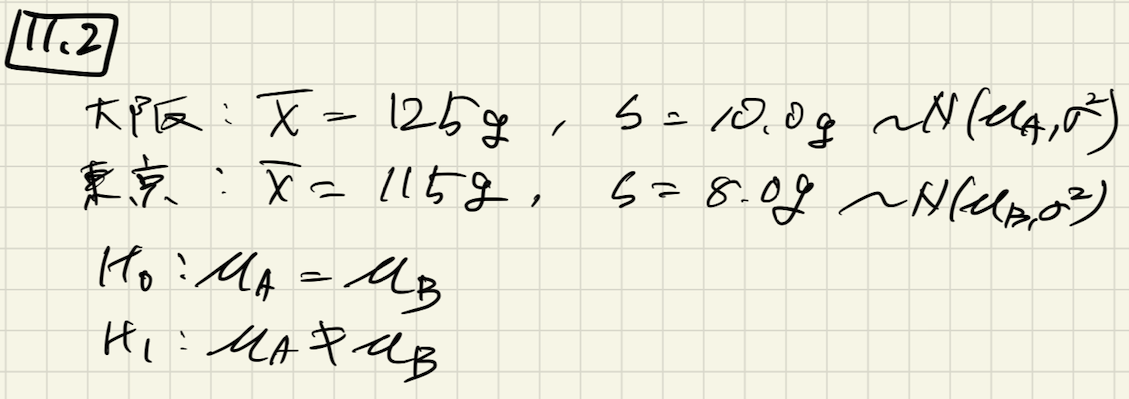 11.2
大阪 : X̄ = 125g , S = 10.0g ~N(μA,σ²)
東京 : X̄ = 115g , S = 8.0g ~N(μB,σ²)
H₀ : μA = μB
H₁ : μA ≠ μB